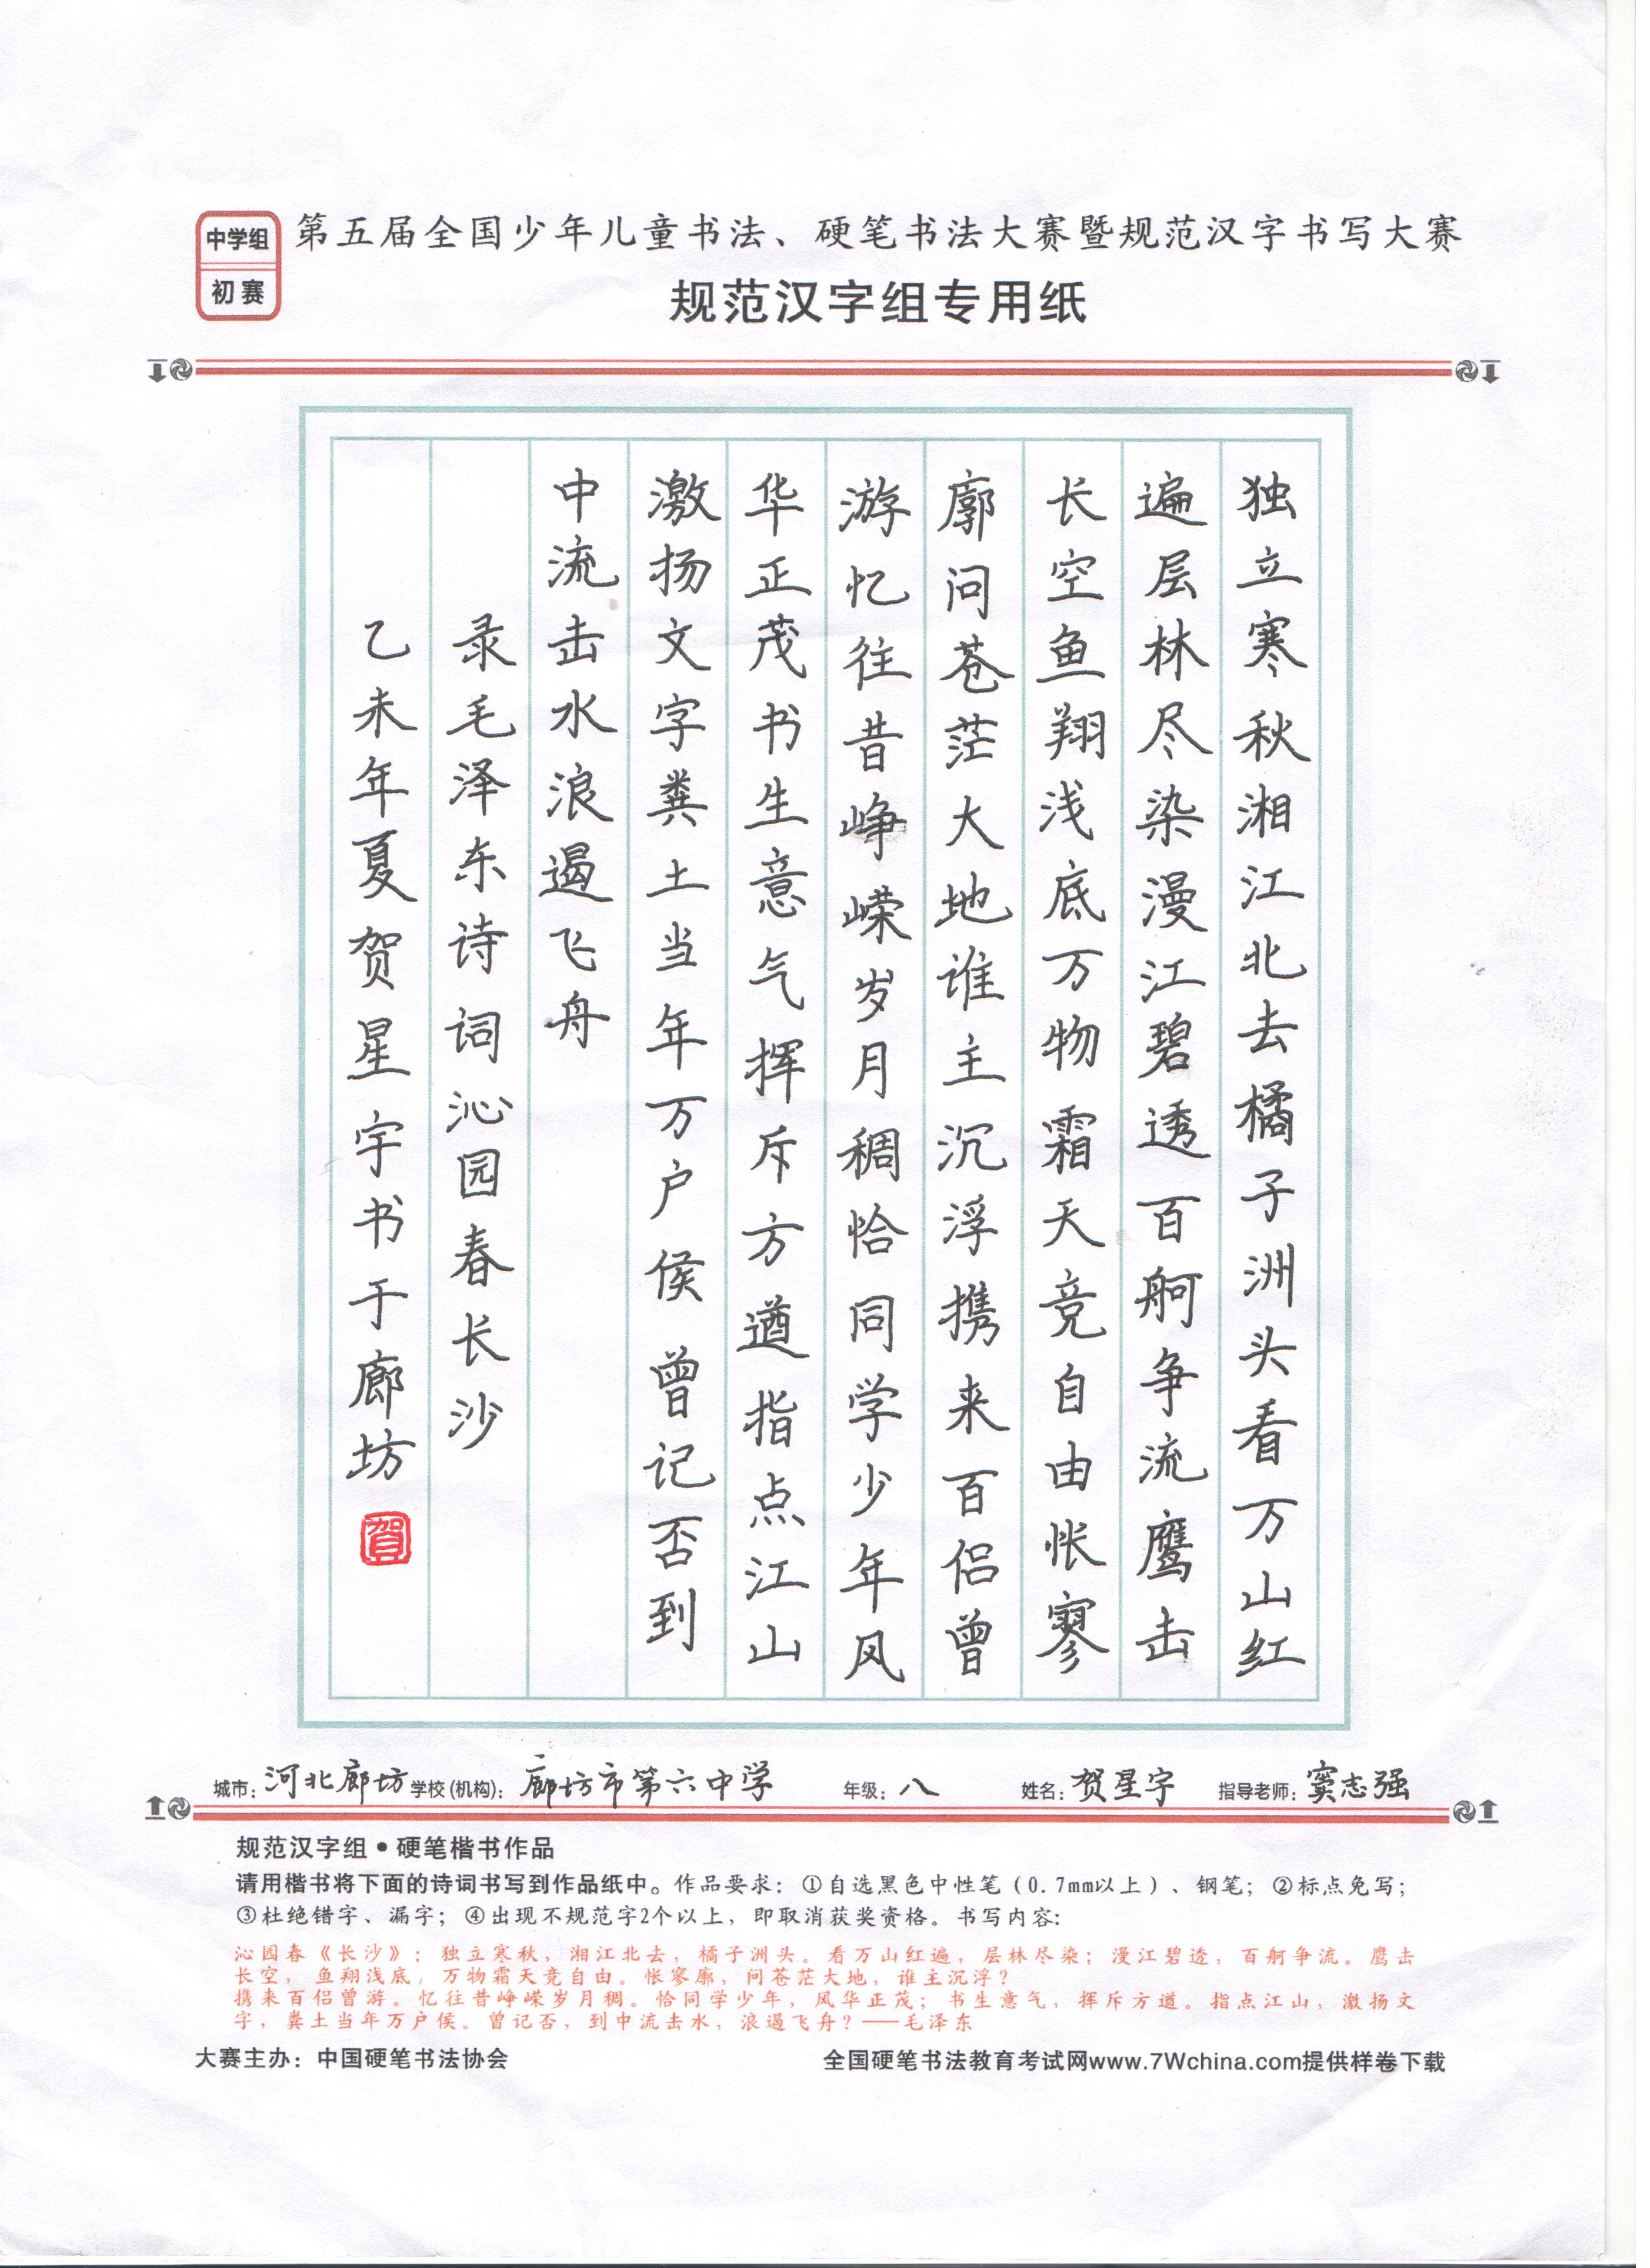 中学组
初赛
第五届全国少年儿童书法、硬笔书法大赛暨规范汉字书写大赛
规范汉字组专用纸
独立寒秋湘江北去橘子洲头看万山红
遍层林尽染漫江碧透百舸争流鹰击
长空鱼翔浅底万物霜天竞自由怅寥
廓问苍茫大地谁主沉浮携来百侣曾
游忆往昔峥嵘岁月稠恰同学少年风
华正茂书生意气挥斥方遒指点江山
激扬文字粪土当年万户侯曾记否到
中流击水浪遏飞舟
录毛泽东诗词沁园春长沙
乙未年夏贺星宇书于廊坊
賀
城市：河北廊坊 学校(机构)：廊坊市第六中学 年级：八 姓名：贺星宇 指导老师：窦志强
规范汉字组•硬笔楷书作品
请用楷书将下面的诗词书写到作品纸中。作品要求：①自选黑色中性笔（0.7mm以上）、钢笔；②标点免写；
③杜绝错字、漏字；④出现不规范字2个以上，即取消获奖资格。书写内容：
沁园春《长沙》：独立寒秋，湘江北去，橘子洲头。看万山红遍，层林尽染；漫江碧透，百舸争流。鹰击
长空，鱼翔浅底，万物霜天竞自由。怅寥廓，问苍茫大地，谁主沉浮？
携来百侣曾游。忆往昔峥嵘岁月稠。恰同学少年，风华正茂；书生意气，挥斥方遒。指点江山，激扬文
字，粪土当年万户侯。曾记否，到中流击水，浪遏飞舟？——毛泽东
大赛主办：中国硬笔书法协会
全国硬笔书法教育考试网www.7Wchina.com提供样卷下载